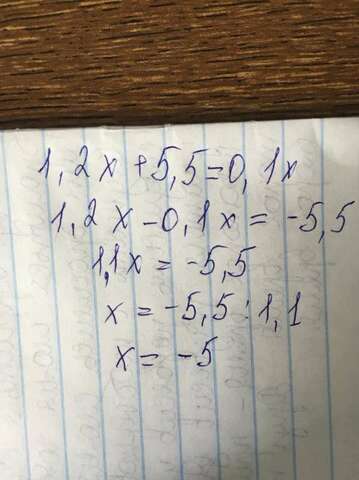 1,2x+5,5=0,1x
1,2x-0,1x=-5,5
1,1x=-5,5
x=-5,5:1,1
x=-5